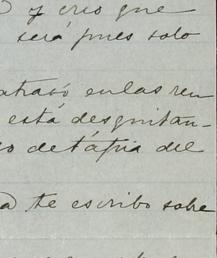 y creo que
será pues solo
atrasó en las ren
está desquitan-
o de tápia del
te escribo sobre